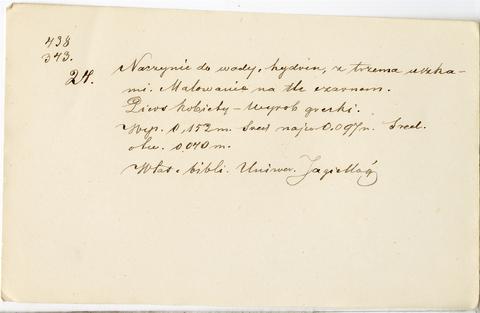 438
343.
24. Naczynie do wody, hydria, z trzema uszka-
mi. Malowanie na tle czarnem.
Piers kobiety – wyrob grecki.
Wys. 0,152 m. Sred najw 0.097 m. Sred.
otw. 0.070 m.
Włas. bibli. Uniwer. Jagiellog